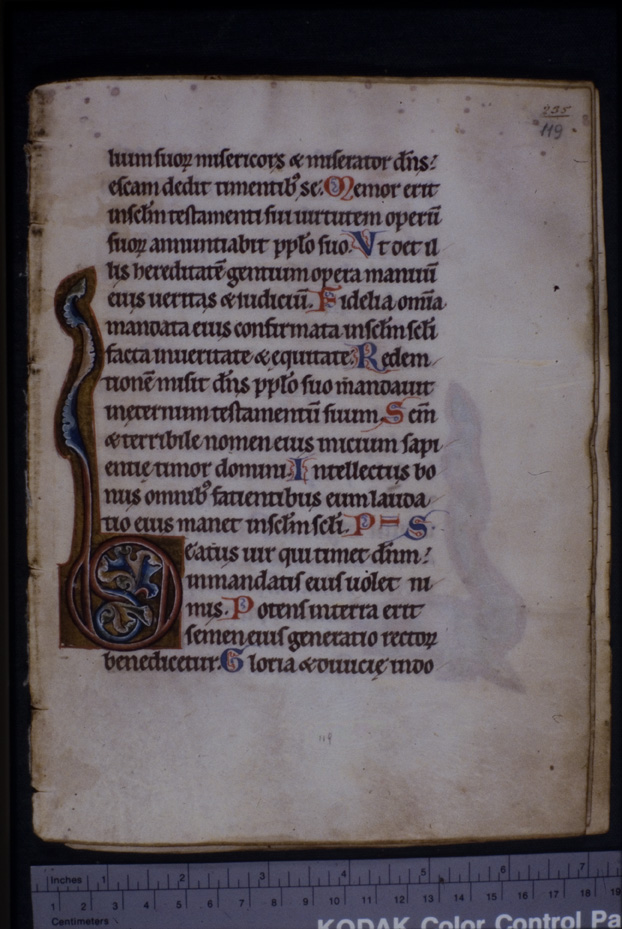 235
119
bium suoꝝ misericors & miserator dñs:
escam dedit timentibꝰ se. Memor erit
inseɫm testamenti sui uirtutem operū
suoꝝ annuntiabit pplo suo. Vt det il
lis hereditatē gentium opera manuū
eius ueritas & iudiciū. Fidelia omīa
mandata eius confirmata inseɫm seɫi
facta inueritate & equitate. Redem
tionē misit dñs pplo suo mandauit
ineternum testamentū suum. Scm̄
& terribile nomen eius inicium sapi
entię timor domini. Intellectus bo
nus omnibꝰ facientibus eum lauda
tio eius manet inseɫm seɫi. P S
Beatus uir qui timet dñm:
inmandatis eius uolet ni
mis. Potens interra erit
semen eius generatio rectoꝝ
benedicetur. Gloria & diuicię indo
119
Inches 1 2 3 4 5 6 7
1 2 3 4 5 6 7 8 9 10 11 12 13 14 15 16 17 18 19
Centimeters
KODAK Color Control Pa